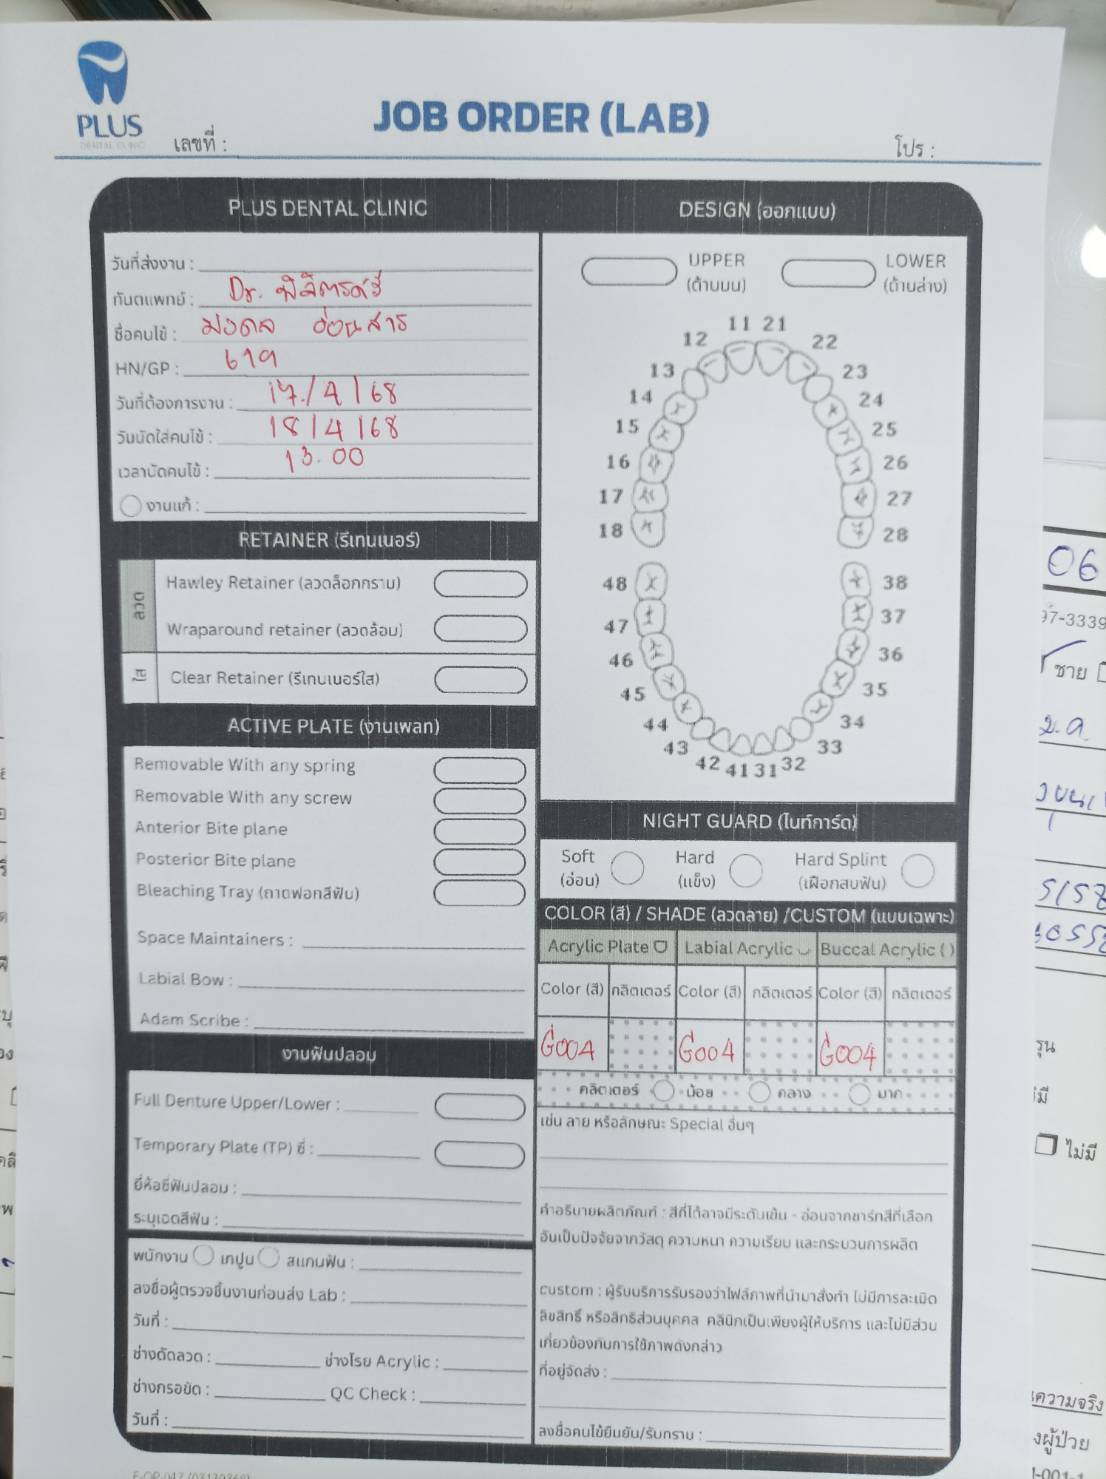 PLUS
DENTAL CLINIC
JOB ORDER (LAB)
เลขที่ :
โทร :
PLUS DENTAL CLINIC
วันที่ส่งงาน :
ทันตแพทย์ : Dr.
ชื่อคนไข้ : มงคล อ่อนสาร
HN/GP : 619
วันที่ต้องการงาน : 17/4/68
วันนัดใส่คนไข้ : 18/4/68
เวลานัดคนไข้ : 13.00
งานแก้ :
RETAINER (รีเทนเนอร์)
ลวด
Hawley Retainer (ลวดล็อกกราม)
Wraparound retainer (ลวดล้อม)
ใส
Clear Retainer (รีเทนเนอร์ใส)
ACTIVE PLATE (งานเพลท)
Removable With any spring
Removable With any screw
Anterior Bite plane
Posterior Bite plane
Bleaching Tray (ถาดฟอกสีฟัน)
Space Maintainers :
Labial Bow :
Adam Scribe :
งานฟันปลอม
Full Denture Upper/Lower :
Temporary Plate (TP) ซี่ :
ยี่ห้อซี่ฟันปลอม :
ระบุเฉดสีฟัน :
พนักงาน เทปูน สแกนฟัน :
ลงชื่อผู้ตรวจชิ้นงานก่อนส่ง Lab :
วันที่ :
ช่างดัดลวด :
ช่างโรย Acrylic :
ช่างกรอขัด :
QC Check :
วันที่ :
DESIGN (ออกแบบ)
UPPER
(ด้านบน)
LOWER
(ด้านล่าง)
11 21
12 22
13 23
14 24
15 25
16 26
17 27
18 28
48 38
47 37
46 36
45 35
44 34
43 33
42 41 31 32
NIGHT GUARD (ไนท์การ์ด)
Soft Hard Hard Splint
(อ่อน) (แข็ง) (เฝือกสบฟัน)
COLOR (สี) / SHADE (ลวดลาย) /CUSTOM (แบบเฉพาะ)
Acrylic Plate Labial Acrylic Buccal Acrylic ( )
Color (สี) กลิตเตอร์ Color (สี) กลิตเตอร์ Color (สี) กลิตเตอร์
G004 G004 G004
กลิตเตอร์ น้อย กลาง มาก
เช่น ลาย หรือลักษณะ Special อื่นๆ
คำอธิบายผลิตภัณฑ์ : สีที่ได้อาจมีระดับเข้ม - อ่อนจากชาร์ทสีที่เลือก
อันเป็นปัจจัยจากวัสดุ ความหนา ความเรียบ และกระบวนการผลิต
custom : ผู้รับบริการรับรองว่าไฟล์ภาพที่นำมาสั่งทำ ไม่มีการละเมิด
ลิขสิทธิ์ หรือสิทธิส่วนบุคคล คลินิกเป็นเพียงผู้ให้บริการ และไม่มีส่วน
เกี่ยวข้องกับการใช้ภาพดังกล่าว
ที่อยู่จัดส่ง :
ลงชื่อคนไข้ยืนยัน/รับทราบ :
06
97-3339
ชาย
ไม่มี
ความจริง
ผู้ป่วย